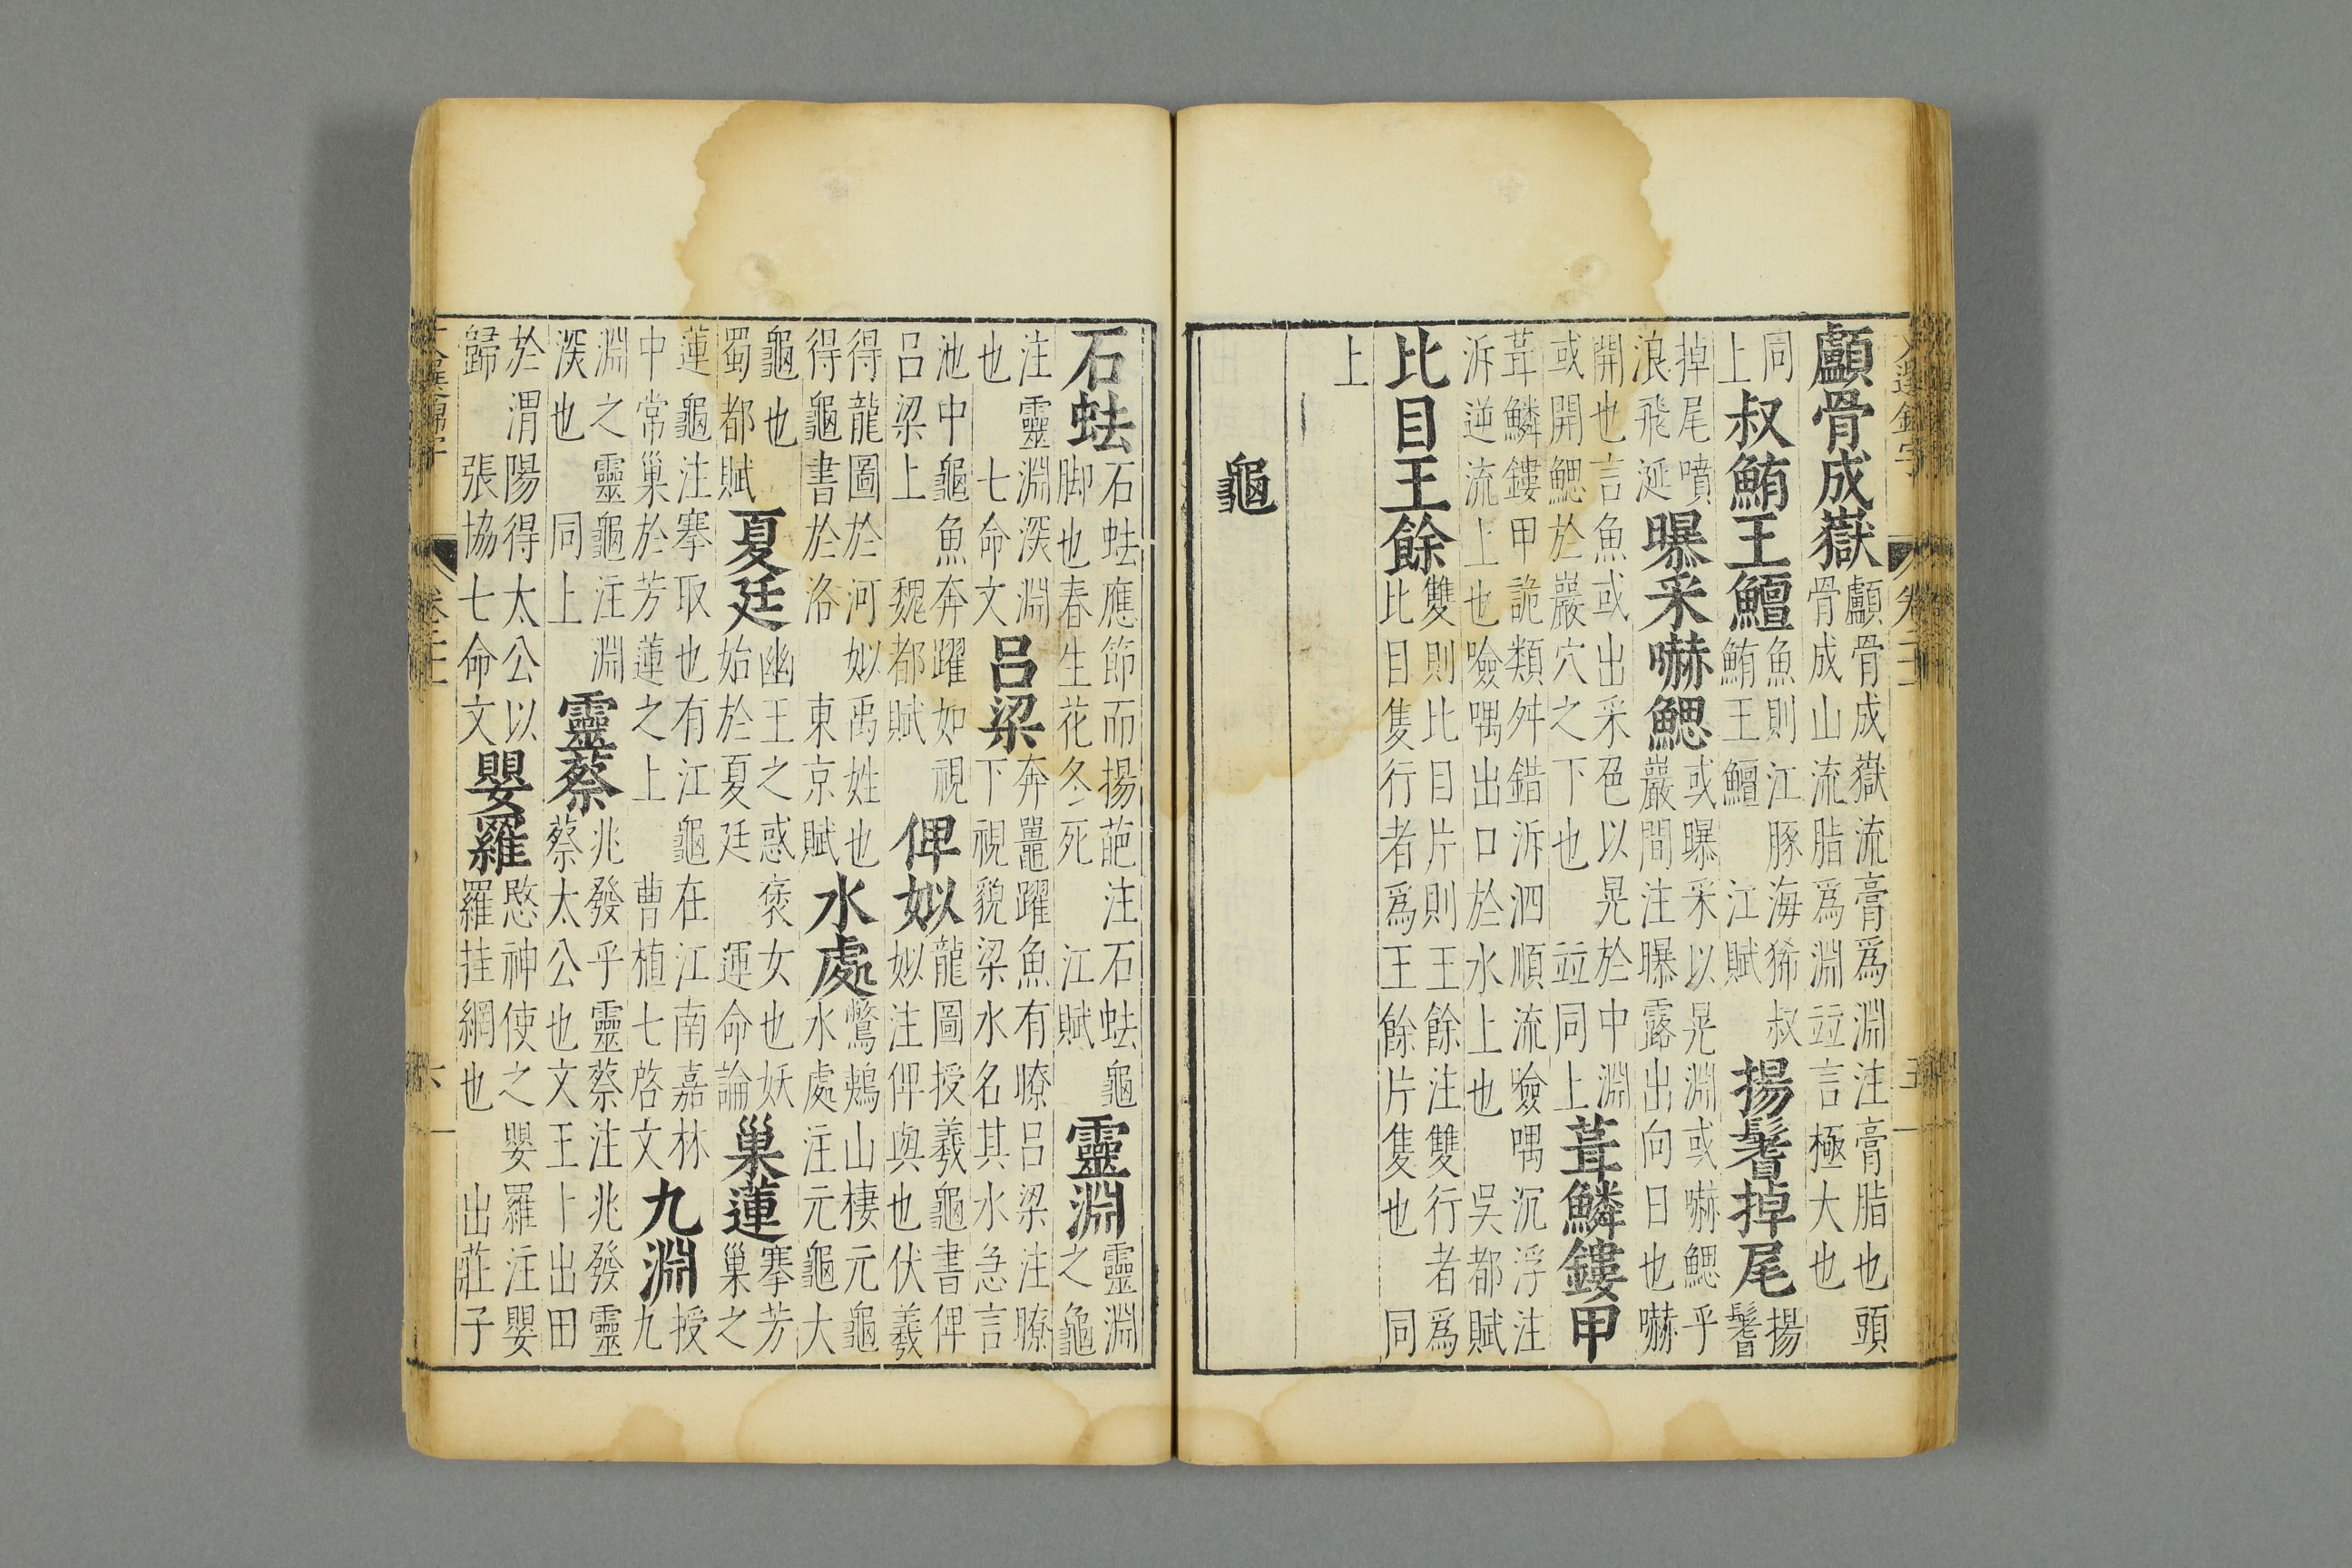 顱骨成嶽顱骨成嶽流膏爲淵注膏脂也頭
骨成山流脂爲淵竝言極大也
同
上
叔鮪王鱣魚則江豚海狶叔
鮪王鱣江賦
揚鬐掉尾揚
鬐
掉尾噴
浪飛延
曝采嚇鰓或曝采以晃淵或嚇鰓乎
巖間注曝露出向日也嚇
開也言魚或出采色以晃於中淵
或開鰓於巖穴之下也竝同上
葺鱗鏤甲
葺鱗鏤甲詭類舛錯泝泗順流噞喁沉浮注
泝逆流上也噞喁出口於水上也吳都賦
比目王餘雙則比目片則王餘注雙行者爲
比目隻行者爲王餘片隻也同
上
龜
石蚨石蚨應節而揚葩注石蚨龜
脚也春生花冬死江賦
靈淵靈淵
之龜
注靈淵深淵
也七命文
呂梁奔鼉躍魚有瞭呂梁注瞭
下視貌梁水名其水急言
池中龜魚奔躍如視
呂梁上魏都賦
俾姒龍圖授羲龜書俾
姒注俾與也伏羲
得龍圖於河姒禹姓也
得龜書於洛東京賦
水處鷩鵣山棲元龜
水處注元龜大
龜也
蜀都賦
夏廷幽王之惑褒女也妖
始於夏廷運命論
巢蓮搴芳
巢之
蓮龜注搴取也有江龜在江南嘉林
中常巢於芳蓮之上曹植七啓文
九淵授
九
淵之靈龜注淵
深也同上
靈蔡兆發乎靈蔡注兆發靈
蔡太公也文王卜出田
於渭陽得太公以
歸張協七命文
嬰羅愍神使之嬰羅注嬰
羅挂網也出莊子